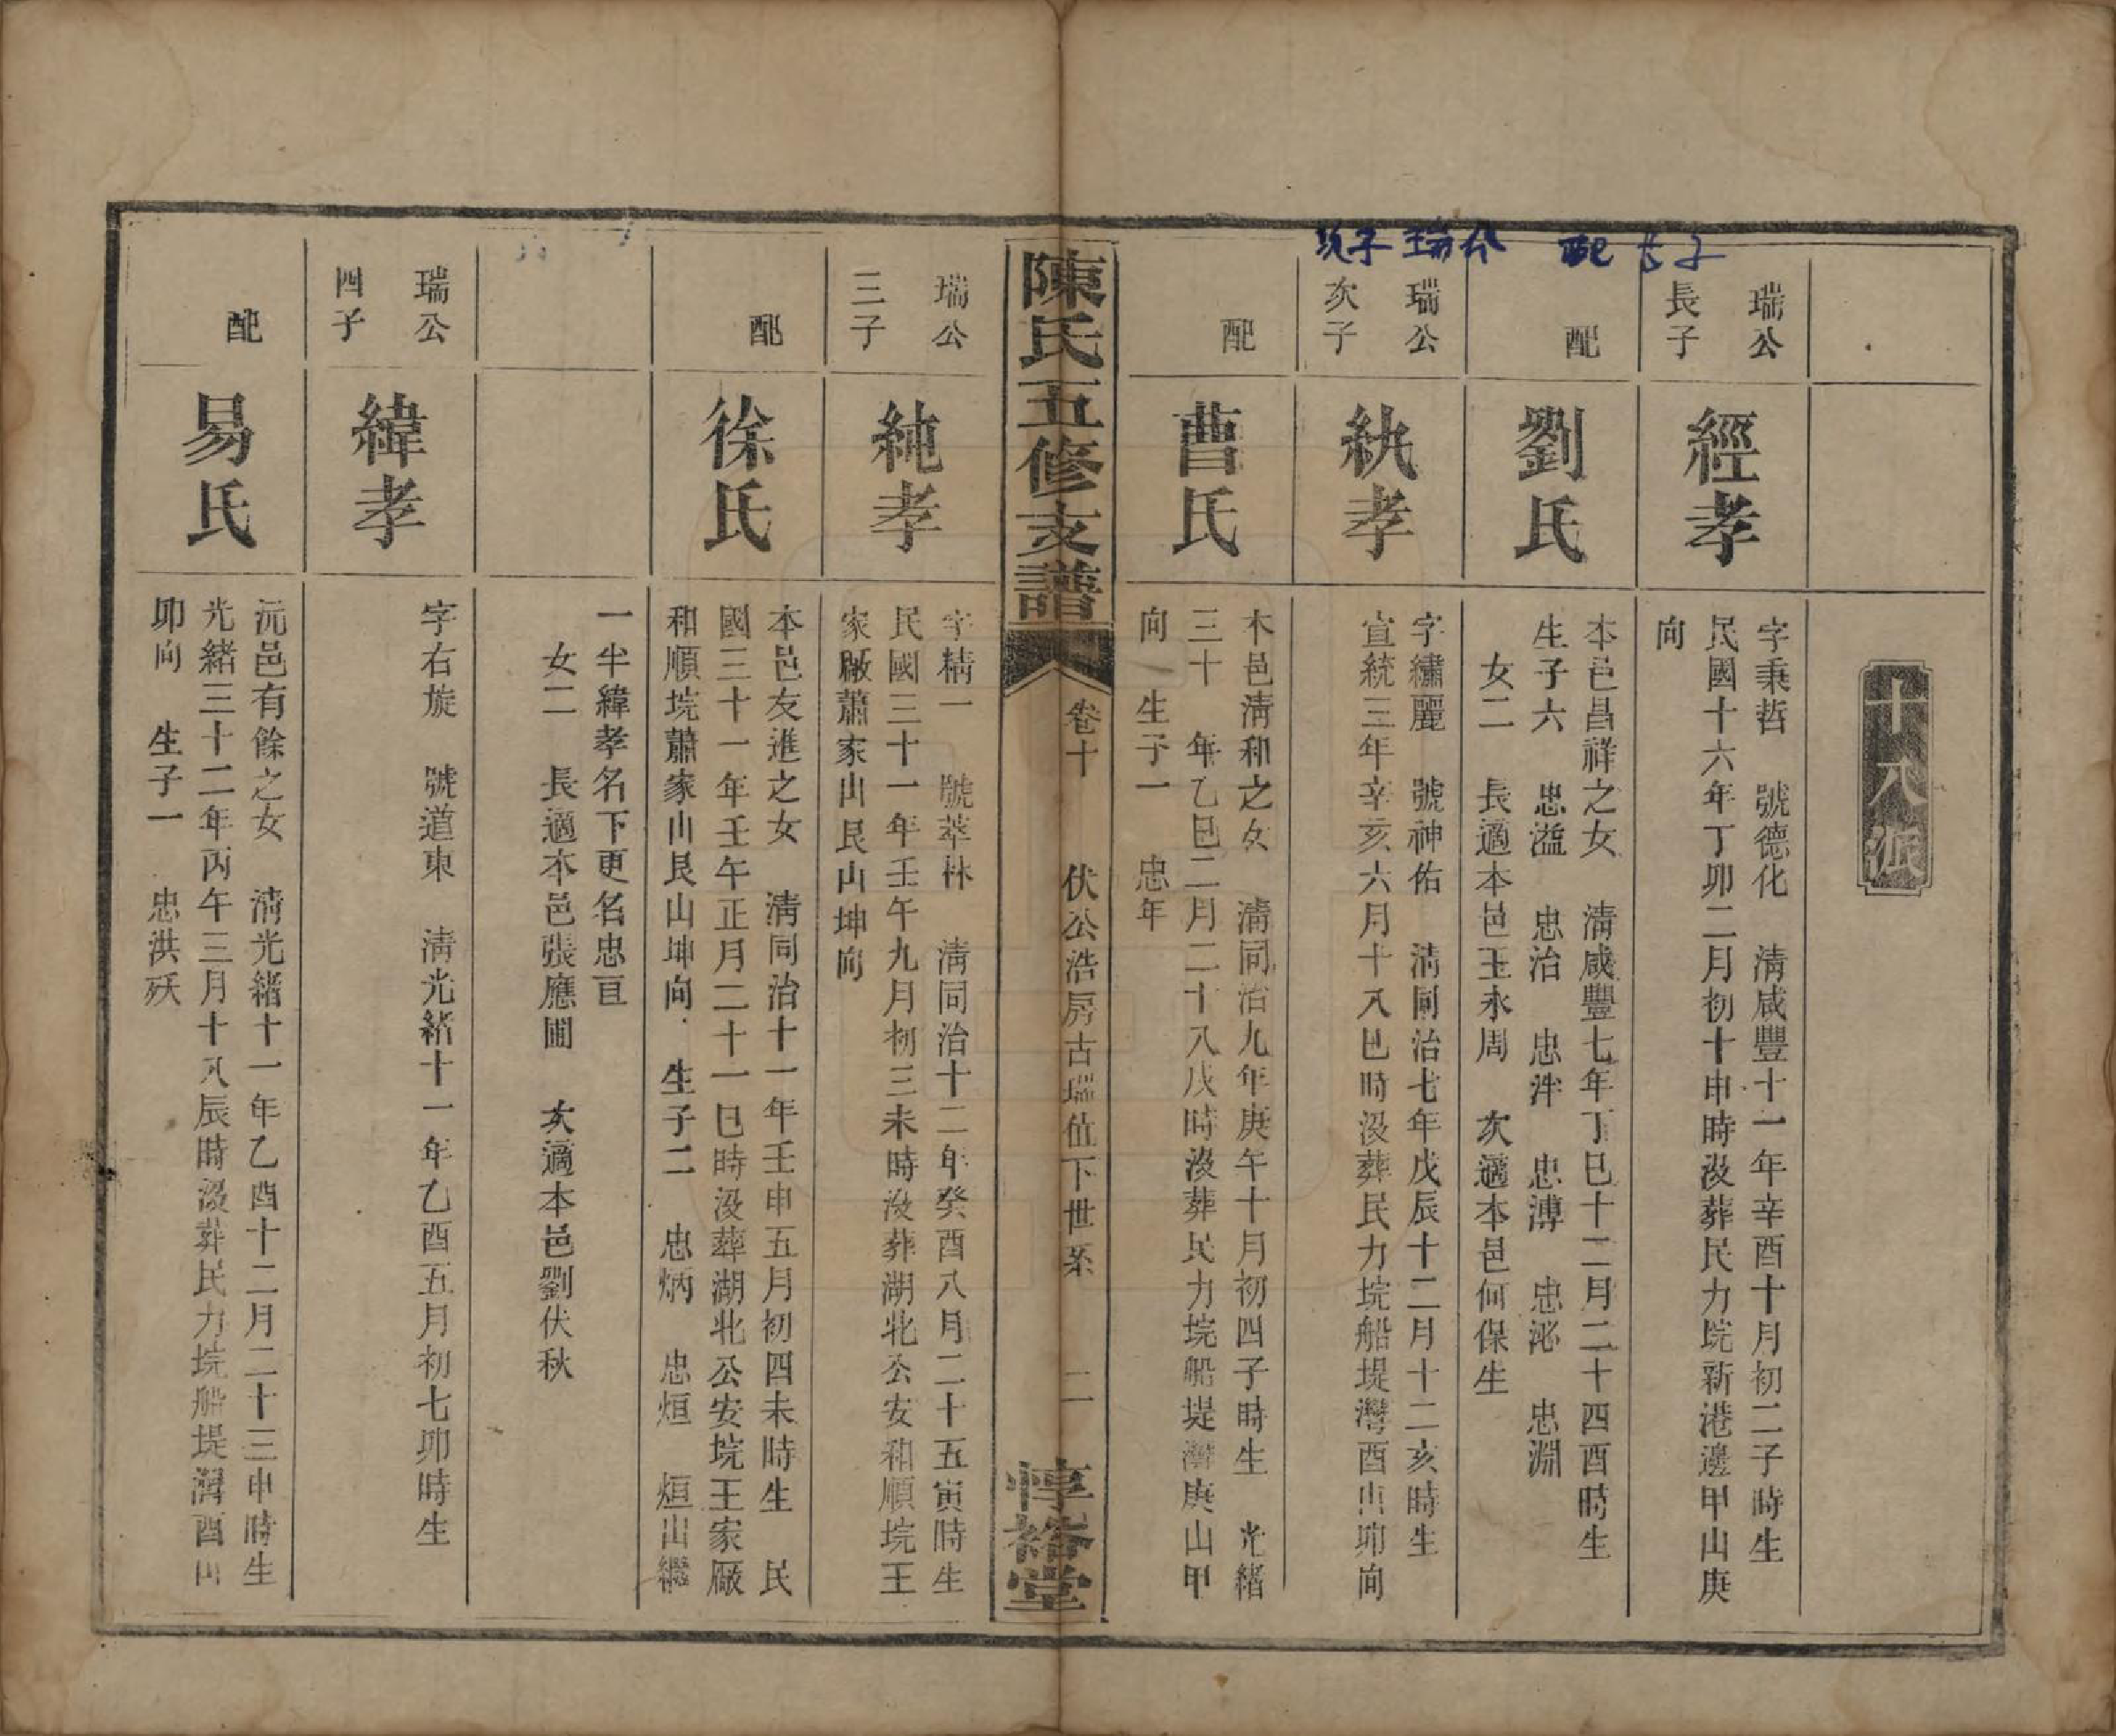 十八派
瑞公
長子
經孝
字秉哲　號德化　淸咸豐十一年辛酉十月初二子時生
民國十六年丁卯二月初十申時沒葬民力垸新港邊甲山庚
向
配
劉氏
本邑昌祥之女　淸咸豐七年丁巳十二月二十四酉時生
生子六　忠溢　忠治　忠泮　忠溥　忠泌　忠淵
女二　長適本邑王永周　次適本邑何保生
瑞公
次子
紈孝
字繡麗　號神佑　淸同治七年戊辰十二月十二亥時生
宣統三年辛亥六月十八巳時沒葬民力垸船堤灣酉山卯向
配
曹氏
本邑淸和之女　淸同治九年庚午十月初四子時生　光緒
三十　年乙巳二月二十八戌時沒葬民力垸船堤灣庚山甲
向　生子一　忠年
陳氏五修支譜
卷十
伏公浩房古瑞值下世系
二
惇裕堂
瑞公
三子
純孝
字精一　號萃林　淸同治十二年癸酉八月二十五寅時生
民國三十一年壬午九月初三未時沒葬湖北公安和順垸王
家廠蕭家山艮山坤向
配
徐氏
本邑友進之女　淸同治十一年壬申五月初四未時生　民
國三十一年壬午正月二十一巳時沒葬湖北公安垸王家廠
和順垸蕭家山艮山坤向　生子二　忠炳　忠烜　烜出繼
一半緯孝名下更名忠亘
女二　長適本邑張應圃　次適本邑劉伏秋
瑞公
四子
緯孝
字右旋　號道東　淸光緒十一年乙酉五月初七卯時生
配
易氏
沅邑有餘之女　淸光緒十一年乙酉十二月二十三申時生
光緒三十二年丙午三月十八辰時沒葬民力垸船堤灣酉山
卯向　生子一　忠洪殀
次子 瑞公 配 長子